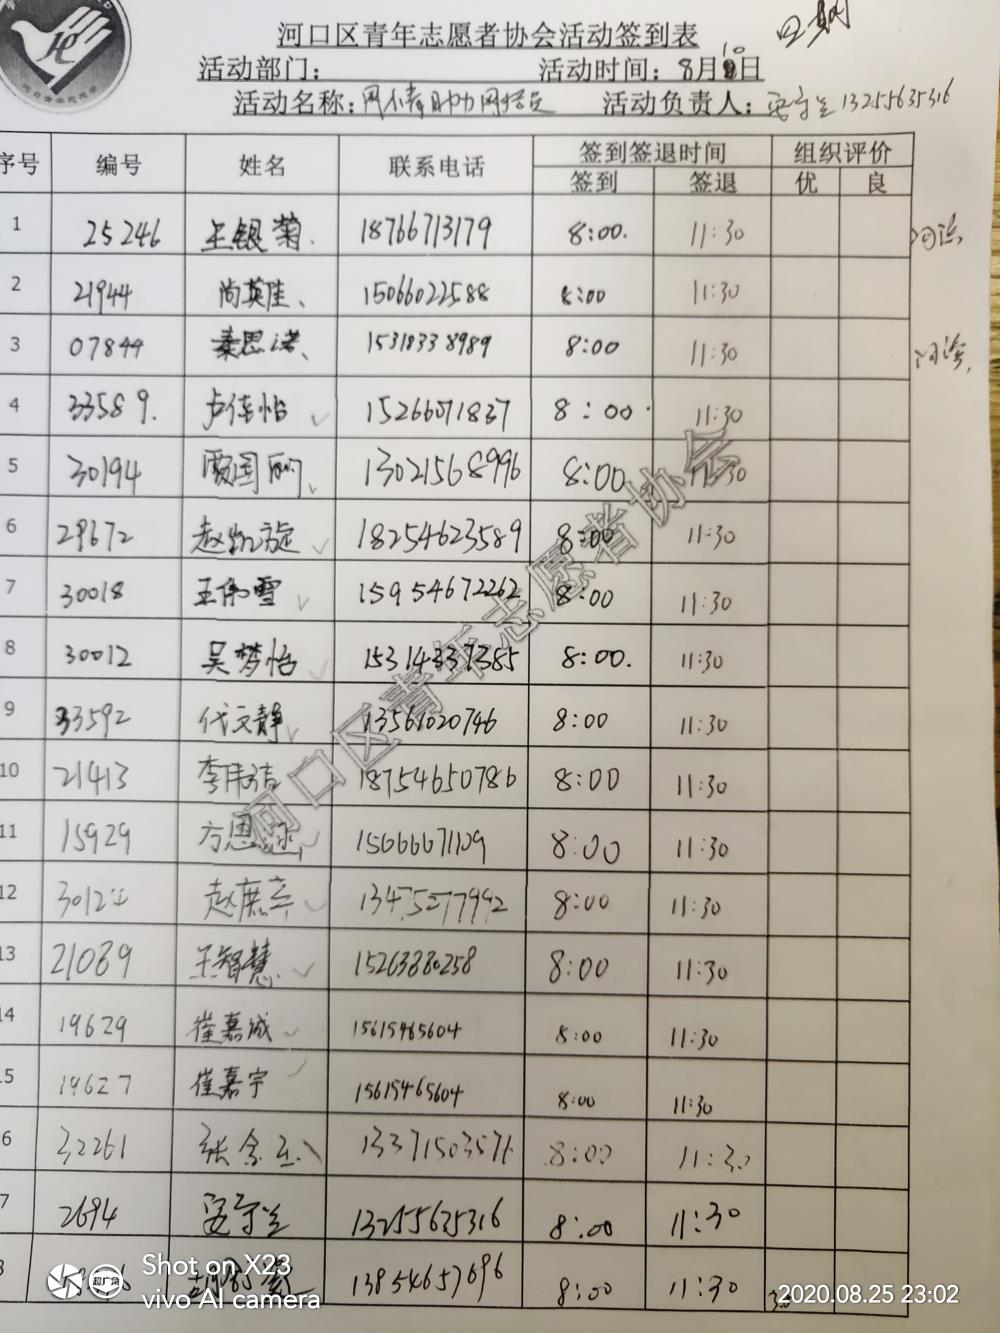 日期
河口区青年志愿者协会活动签到表
活动部门： 活动时间：8月10日
活动名称： 活动负责人：安宁兰 13255635316
序号 编号 姓名 联系电话 签到签退时间 组织评价
签到 签退 优 良
1 25246 王银菊. 18766713179 8:00. 11:30
2 21944 尚英佳、 15066022588 8:00 11:30
3 07844 秦思诺、 15318338989 8:00 11:30
4 33589. 卢佳怡 15266071837 8:00· 11:30
5 30194 贾国丽 13021568996 8:00 11:30
6 29672 赵凯旋 18254623589 8:00 11:30
7 30018 王伟雪 15954672262 8:00 11:30
8 30012 吴梦怡 15314337385 8:00. 11:30
9 33592 代文静 13561020746 8:00 11:30
10 21413 李伟洁 18754650786 8:00 11:30
11 15929 方恩 15666671109 8:00 11:30
12 30124 赵 13475277992 8:00 11:30
13 21089 王智慧 15263880258 8:00 11:30
14 19629 崔嘉诚 15615465604 8:00 11:30
15 19627 崔嘉宇 15615465604 8:00 11:30
6 32261 张 13371503571 8:00 11:30
7 2694 安宁兰 13255635316 8:00 11:30
8 13854657696 8:00 11:30
河口区青年志愿者协会
Shot on X23
vivo AI camera
2020.08.25 23:02